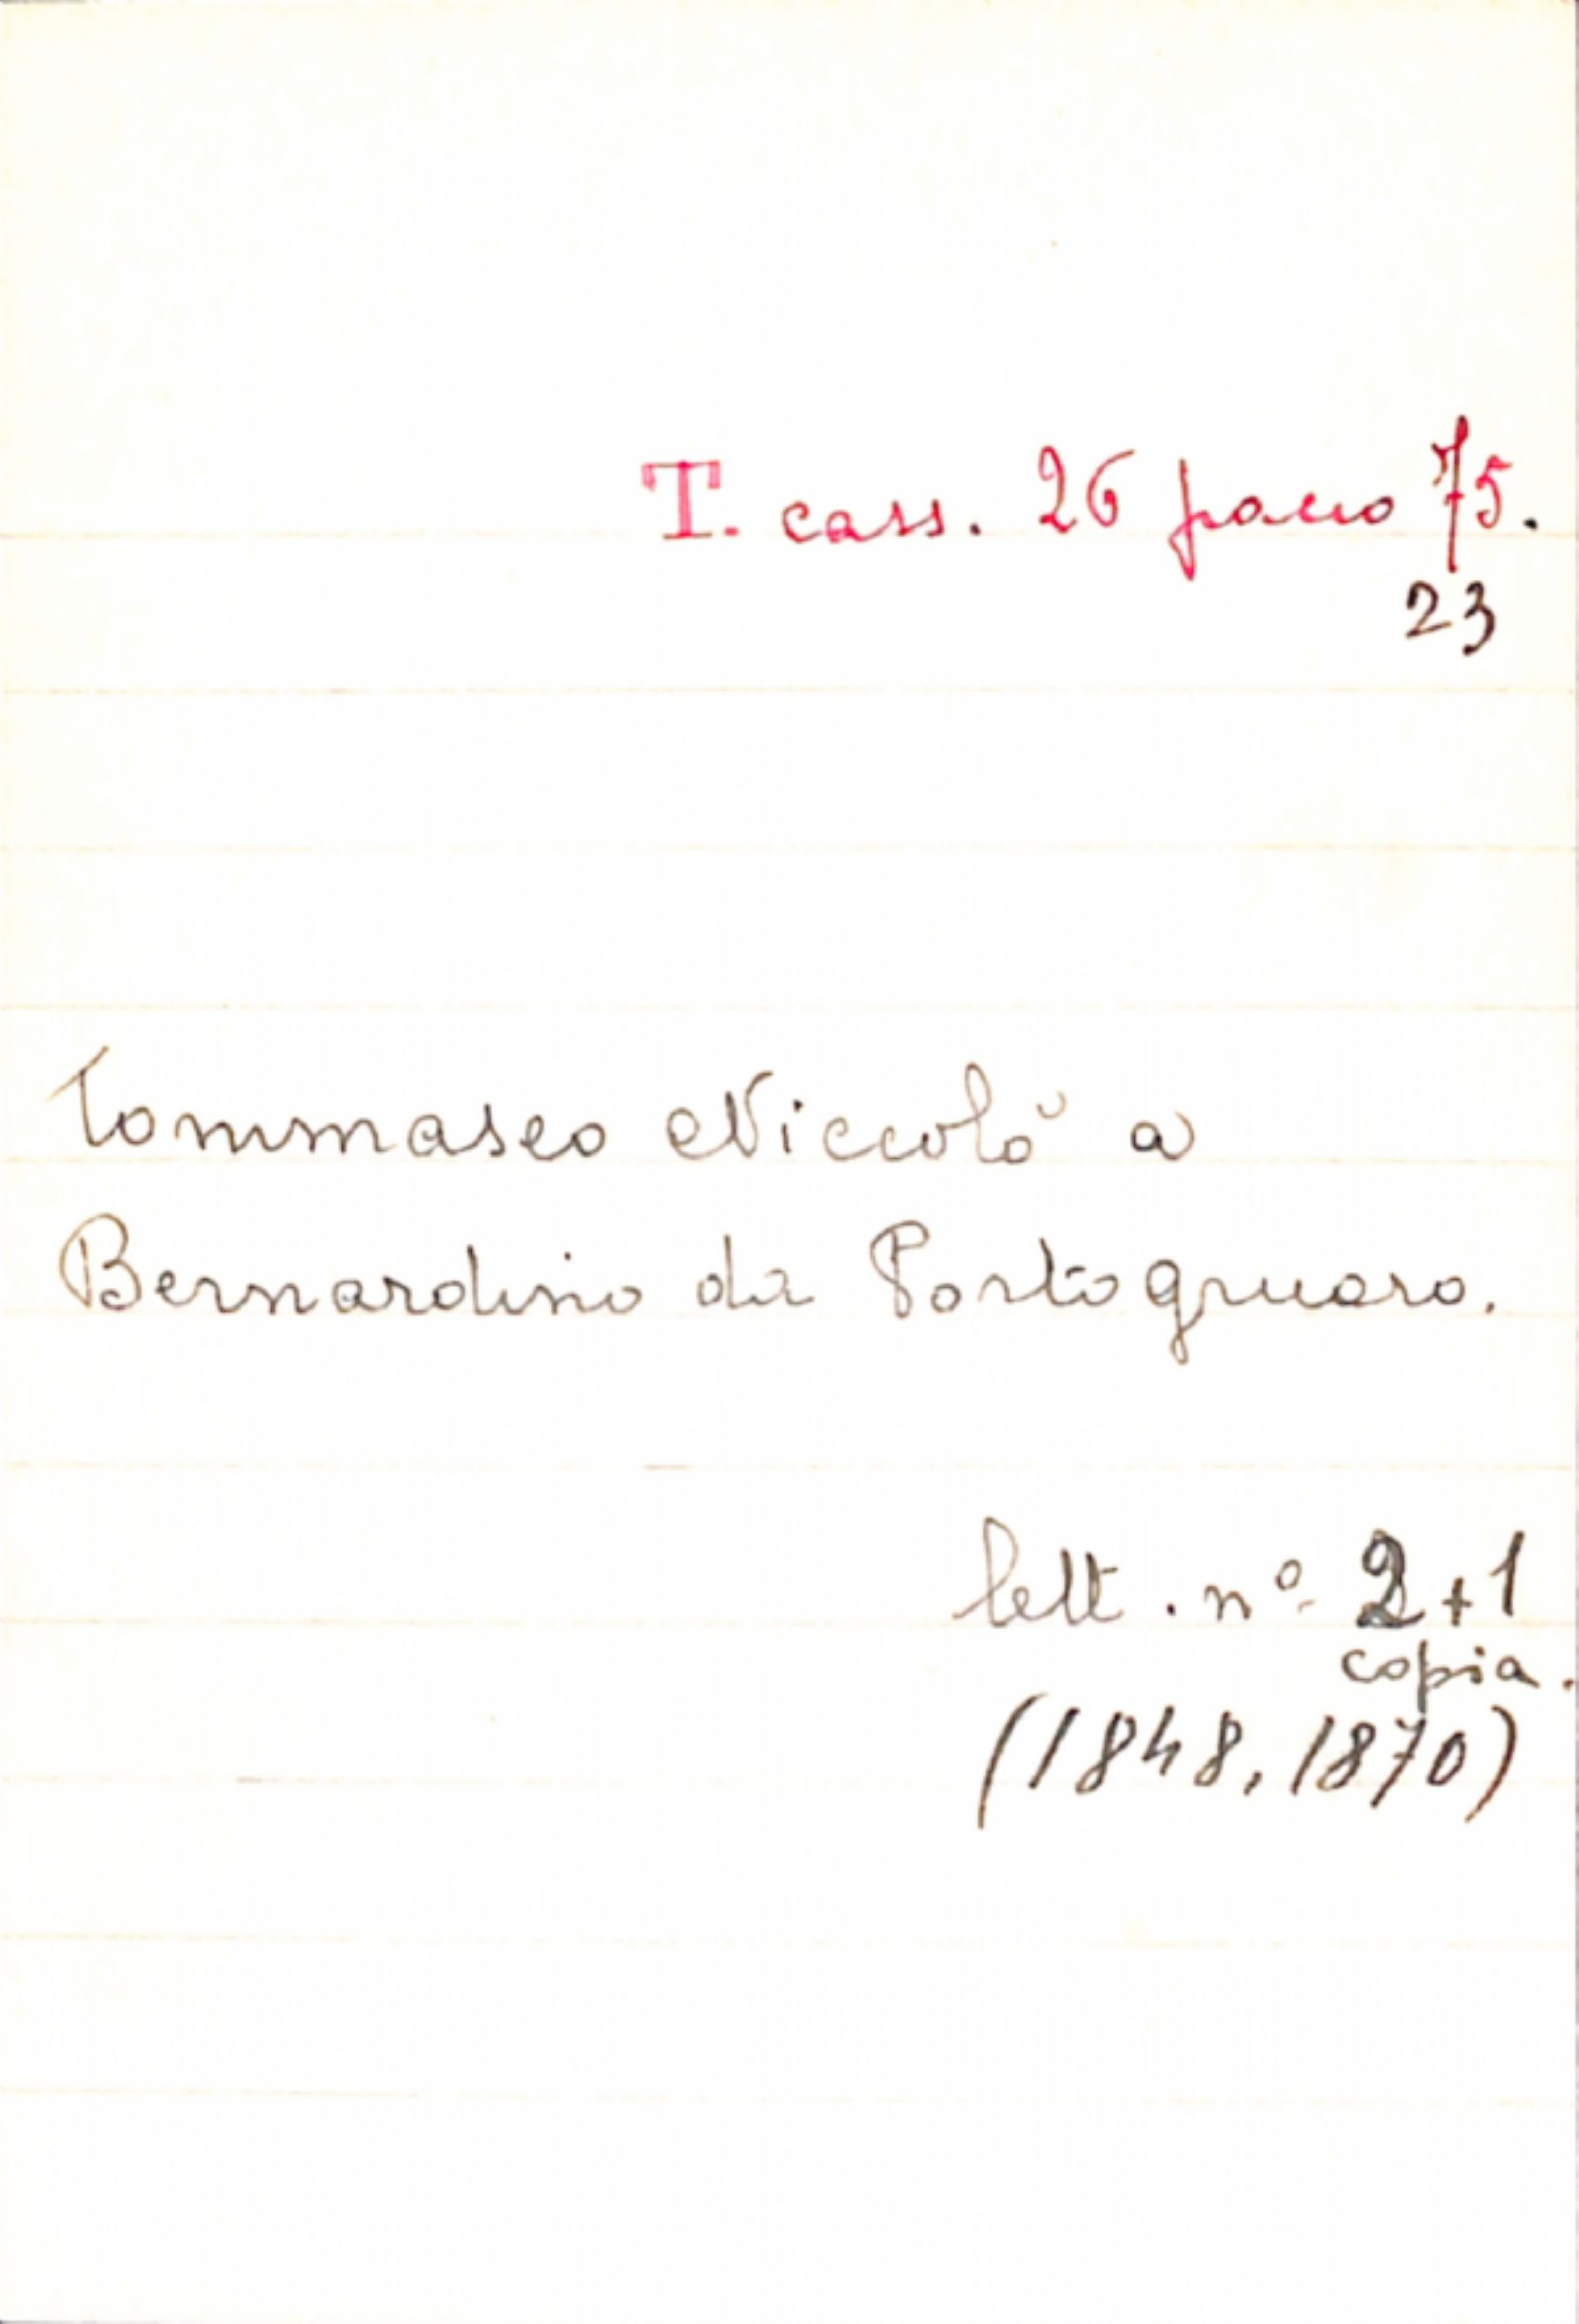 T. cass. 26 pacco 75.
23
Tommaseo Niccolò a
Bernardino da Portogruaro.
lett. nº 2+1
copia.
(1848, 1870)